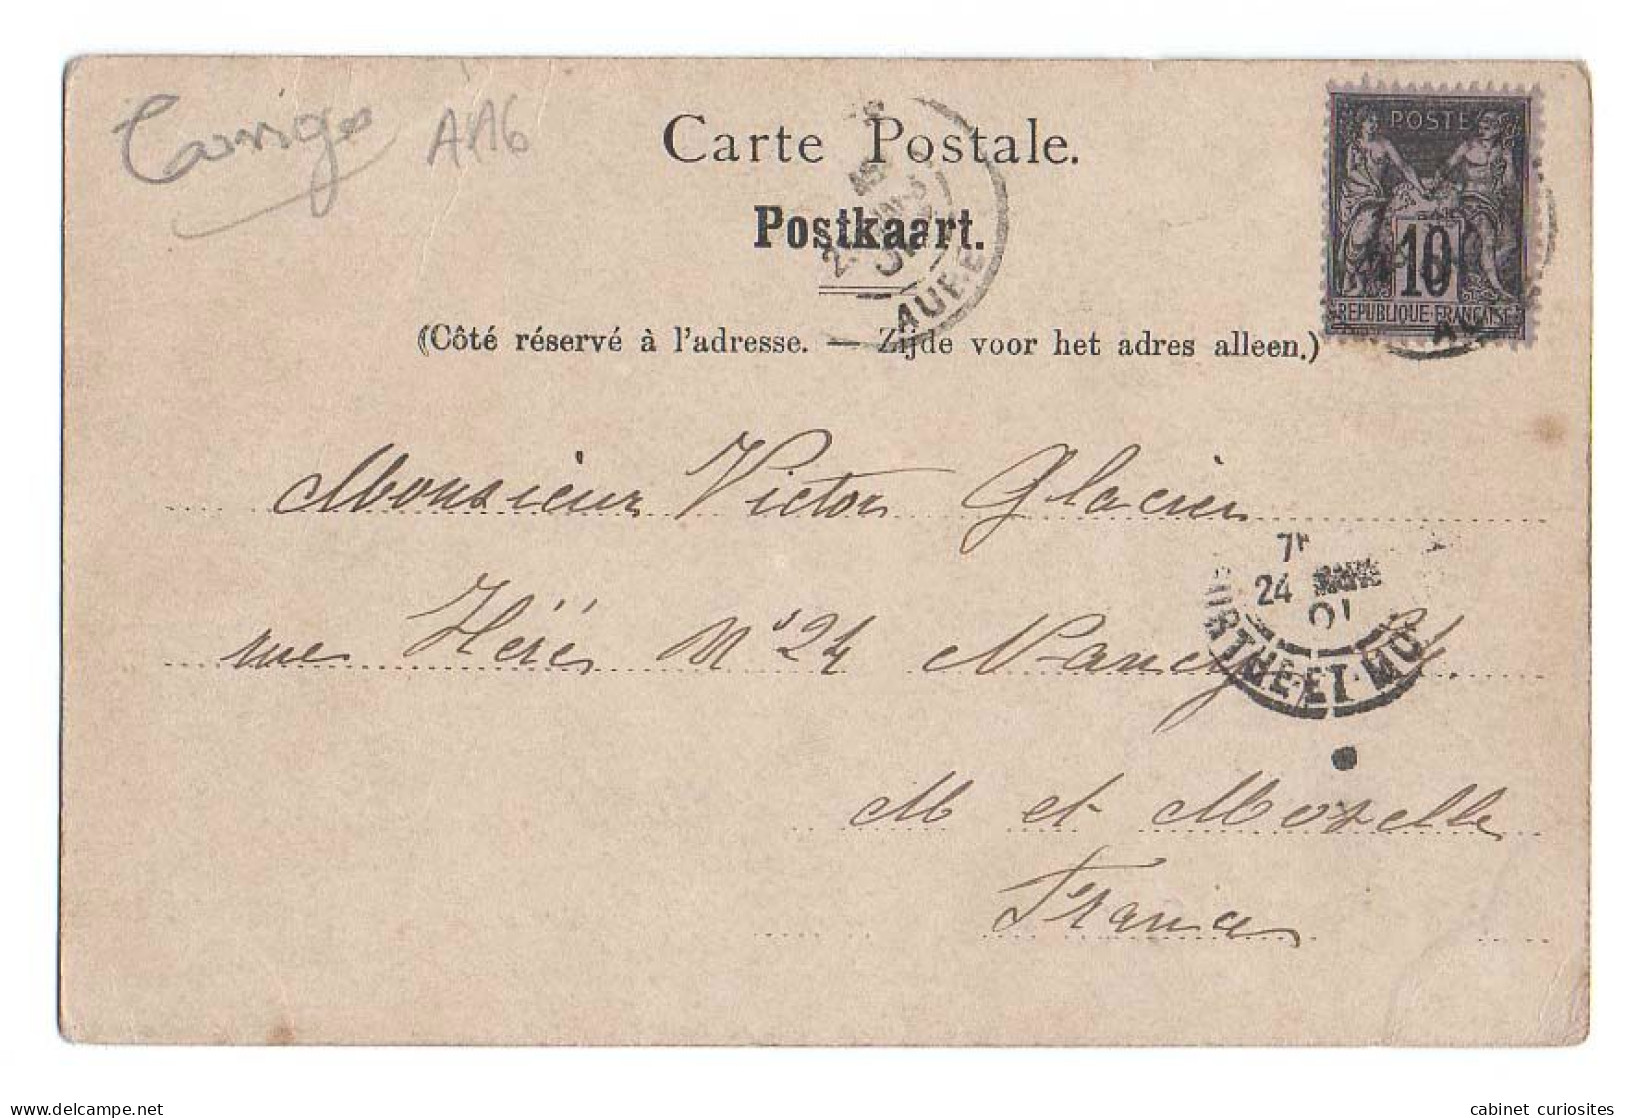 A116
Carte Postale.
Postkaart.
(Côté réservé à l'adresse. — Zijde voor het adres alleen.)
POSTE
10
REPUBLIQUE FRANÇAISE
AUBE
Monsieur Victor Glacier
rue Héré N° 24 Nancy
24
01
MEURTHE-ET-MO
M et Moselle
France
www.delcampe.net
cabinet curiosites